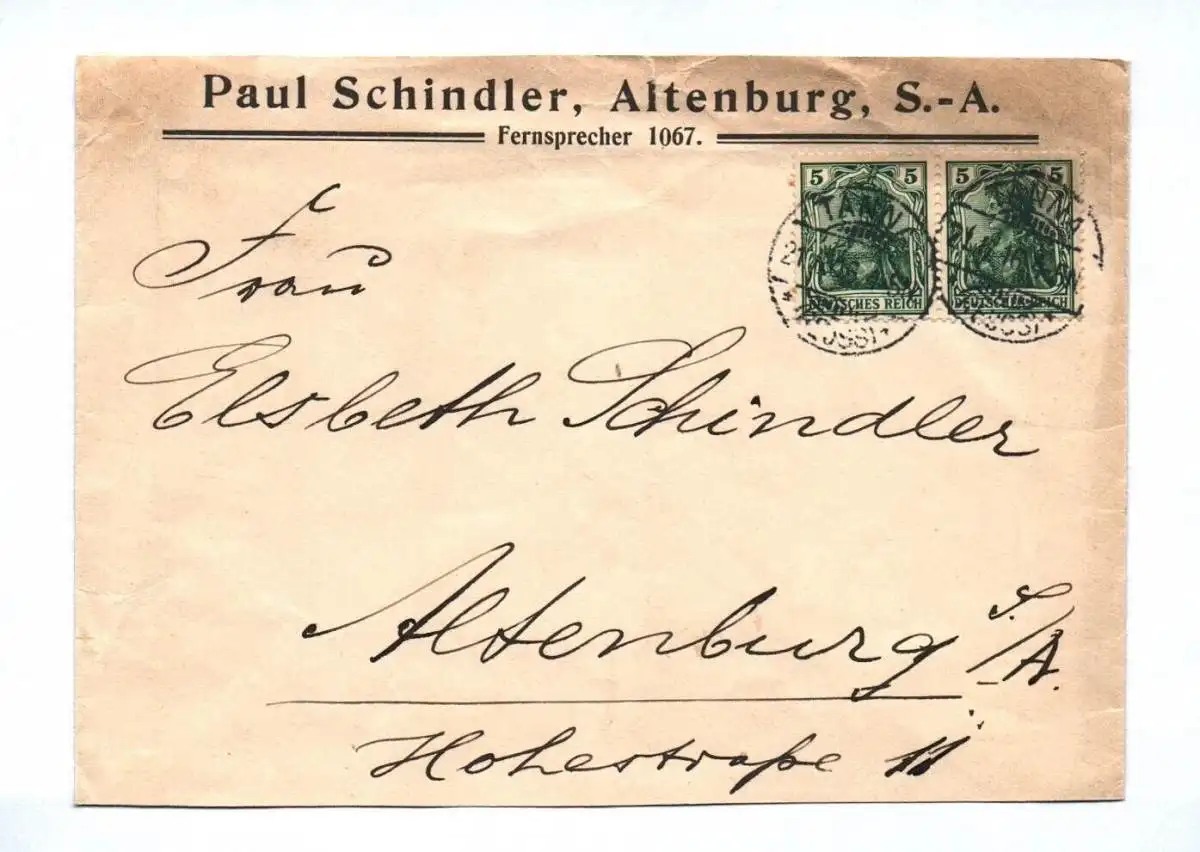 Paul Schindler, Altenburg, S.-A.
Fernsprecher 1067.
5 5 5 5
TANNA TANNA
DEUTSCHES REICH DEUTSCHES REICH
Frau
Elsbeth Schindler
Altenburg S./A.
Hohestraße 11